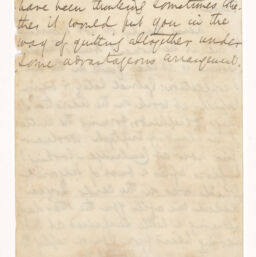 have been thinking sometimes whe-
ther it would put you in the
way of quitting altogether under
some advantageous arrangement.